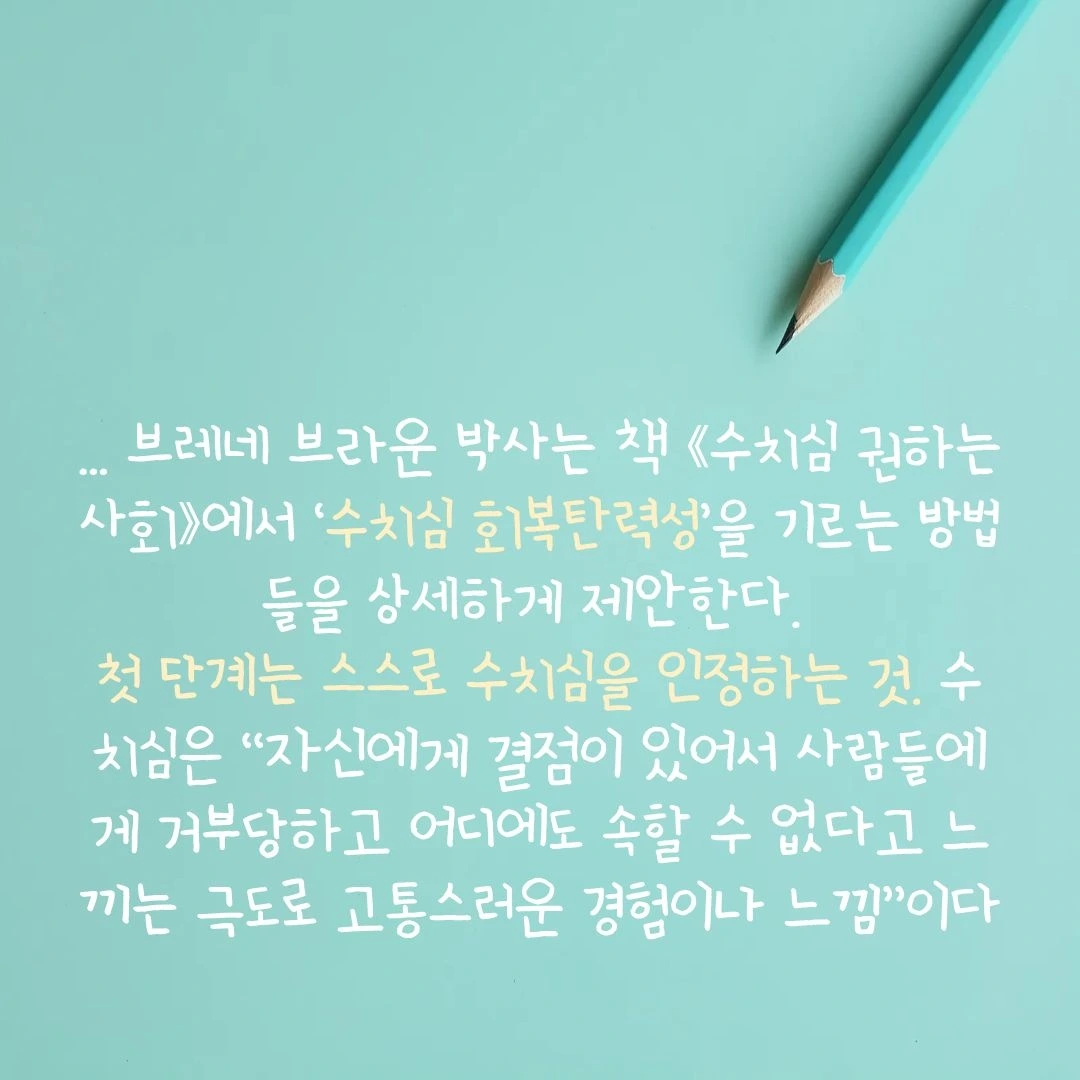 ... 브레네 브라운 박사는 책 《수치심 권하는
사회》에서 ‘수치심 회복탄력성’을 기르는 방법
들을 상세하게 제안한다.
첫 단계는 스스로 수치심을 인정하는 것. 수
치심은 “자신에게 결점이 있어서 사람들에
게 거부당하고 어디에도 속할 수 없다고 느
끼는 극도로 고통스러운 경험이나 느낌”이다